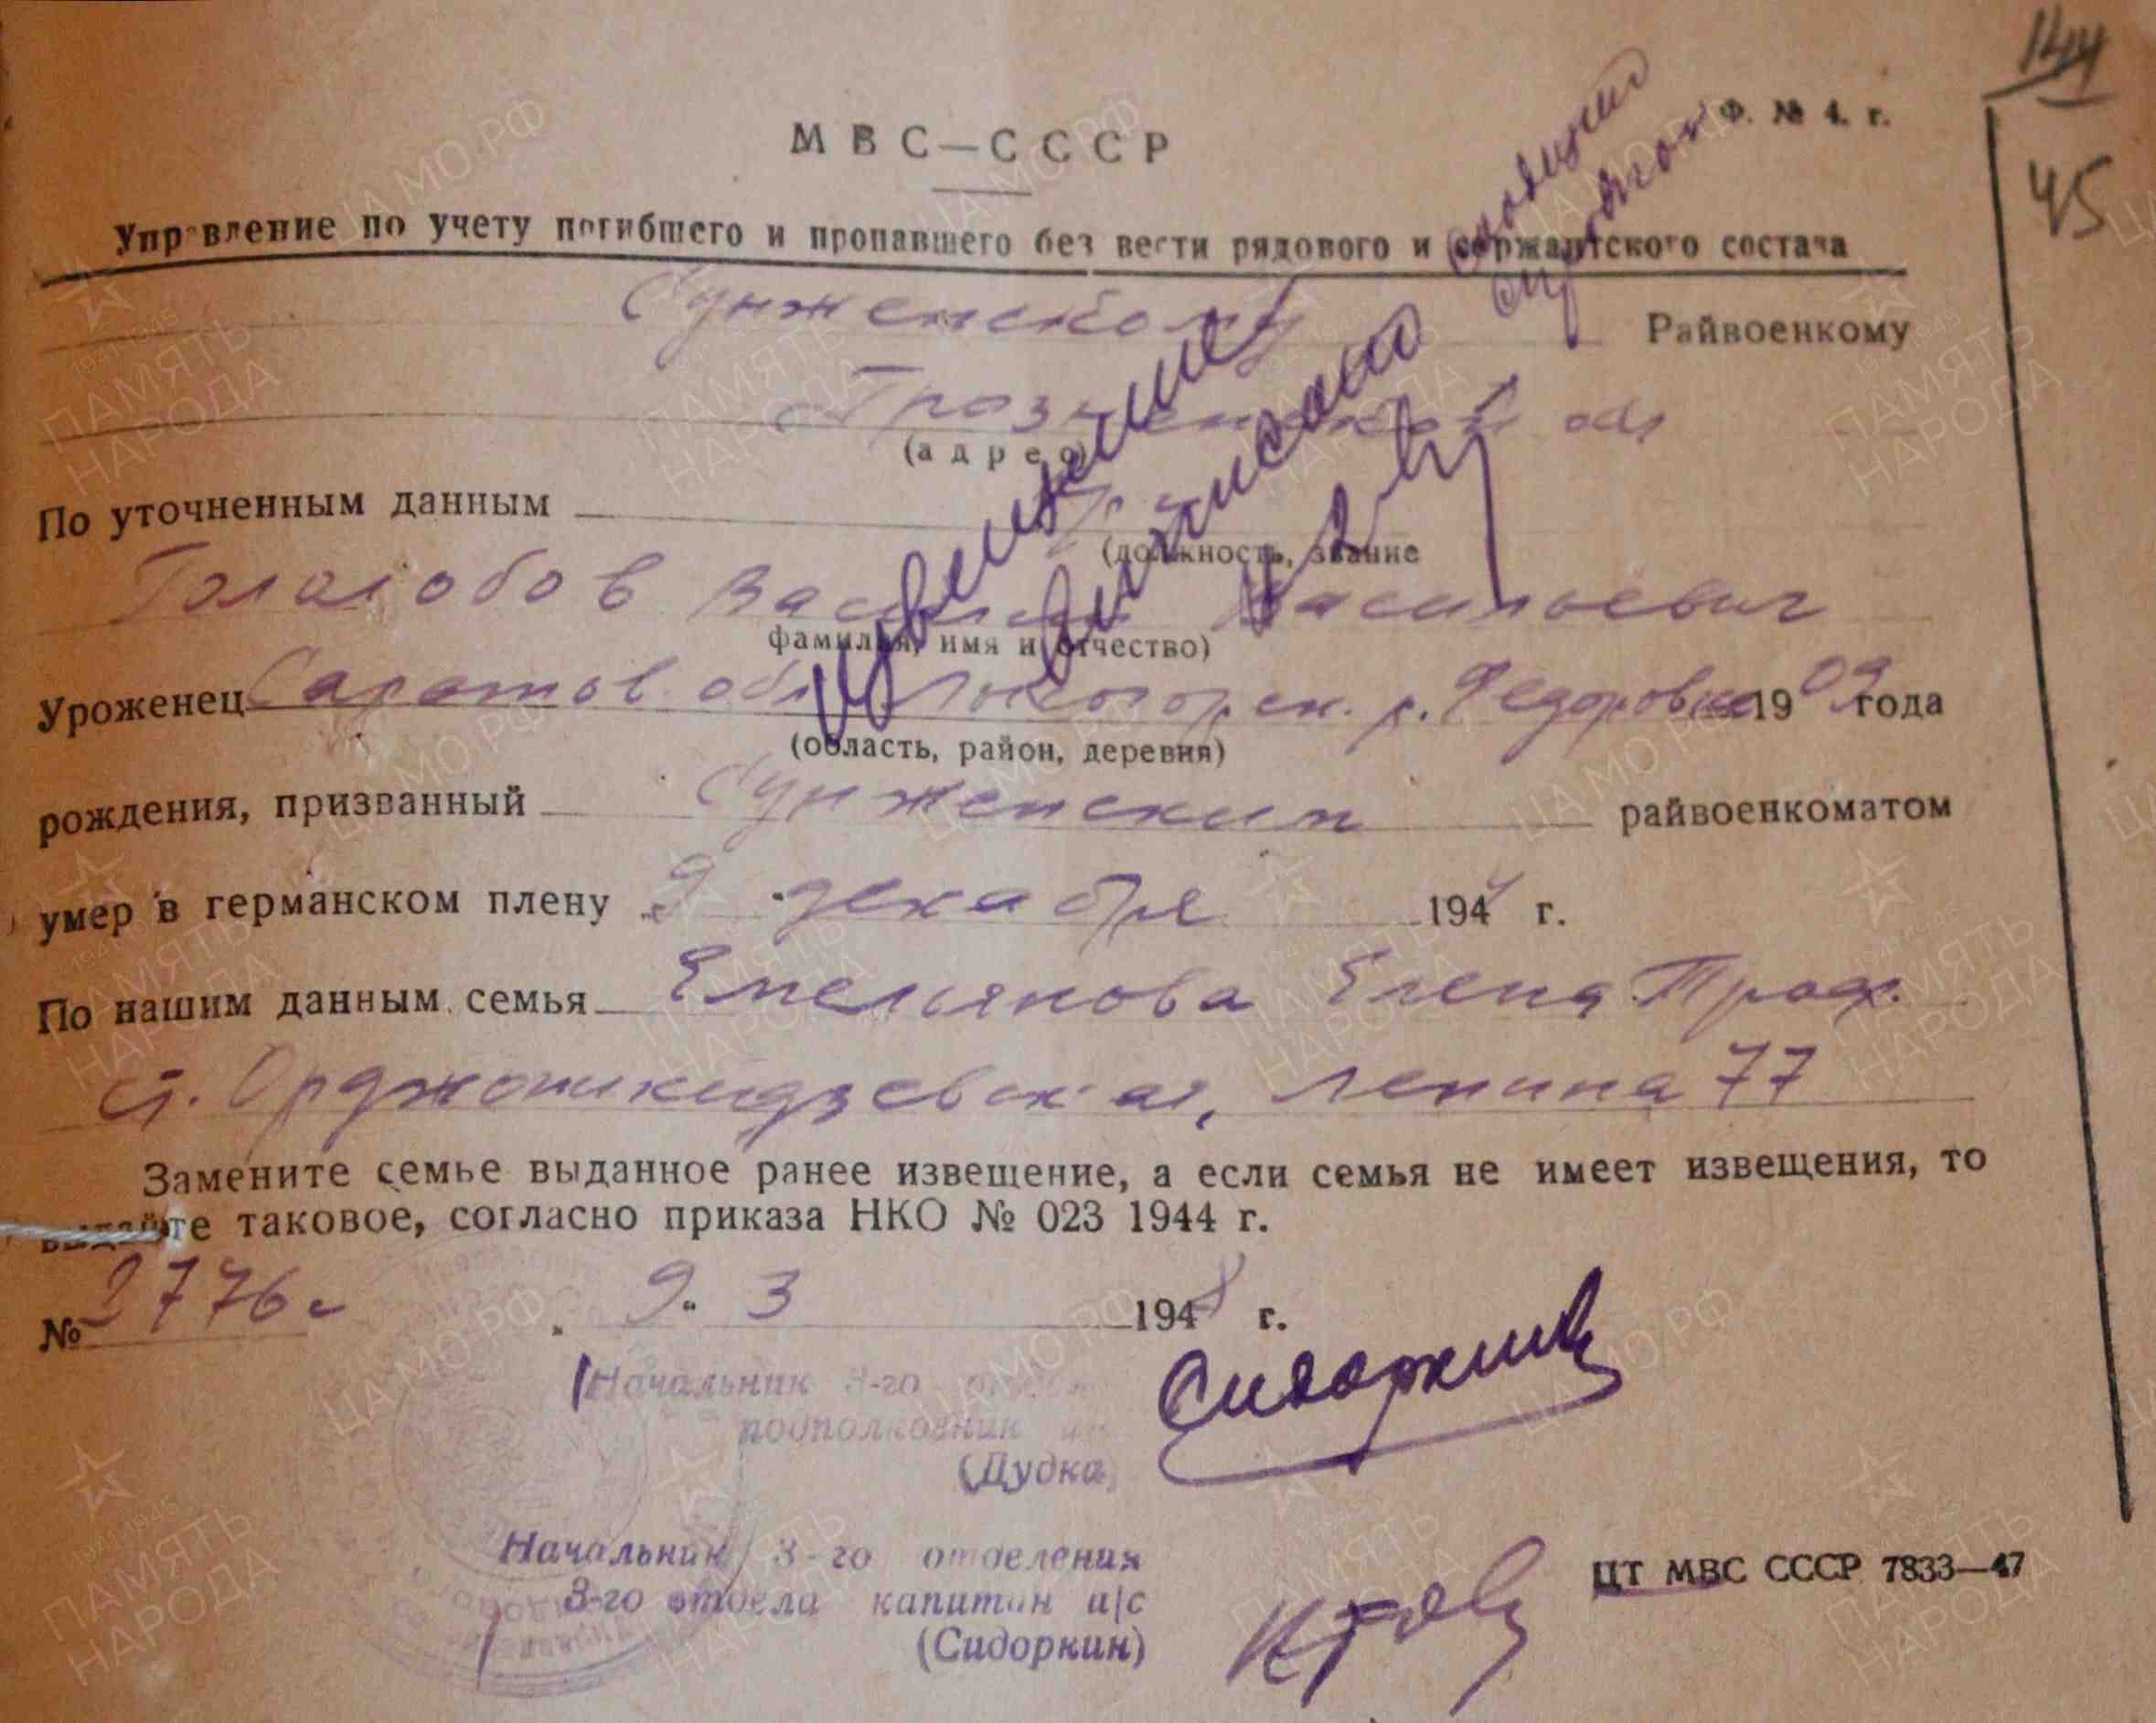 144
45
Ф. № 4. г.
МВС—СССР
Управление по учету погибшего и пропавшего без вести рядового и сержантского состава
Сунженскому Райвоенкому
Грозненской обл
(адрес)
По уточненным данным
(должность, звание
Голагобов Василий Васильевич
фамилия, имя и отчество)
Уроженец Саратов. обл Лысогорск. р. Федоровка 1909 года
(область, район, деревня)
рождения, призванный Сунженским райвоенкоматом
умер в германском плену 9 декабря 194 г.
По нашим данным семья Емельянова Елена Проф.
ст. Орджоникидзевская, Ленина 77
Замените семье выданное ранее извещение, а если семья не имеет извещения, то
выдайте таковое, согласно приказа НКО № 023 1944 г.
№ 2776с 9. 3 1948 г.
Извещение
выписано
Начальник 3-го отдела
подполковник
(Дудка)
Сидоркин
Начальник 3-го отделения
3-го отдела капитан а/с
(Сидоркин)
ЦТ МВС СССР 7833—47
ЦА МО.РФ
1941-1945
ПАМЯТЬ
НАРОДА